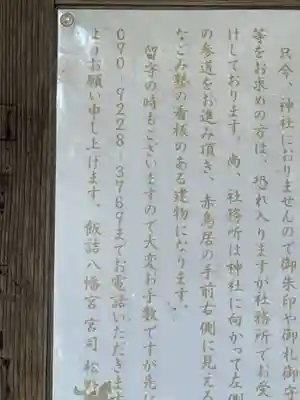 只今、神社におりませんので御朱印や御札御守
等をお求めの方は、恐れ入りますが社務所でお受
けしております。尚、社務所は神社に向かって左側
の参道をお進み頂き、赤鳥居の手前右側に見える
なごみ塾の看板のある建物になります。
留守の時もございますので大変お手数ですが先に
090-9228-3769までお電話いただきます
よりお願い申し上げます。飯詰八幡宮宮司松